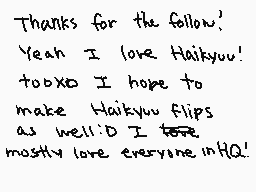 Thanks for the follow!
Yeah I love Haikyuu!
tooXD I hope to
make Haikyuu flips
as well:D I love
mostly love everyone in HQ!